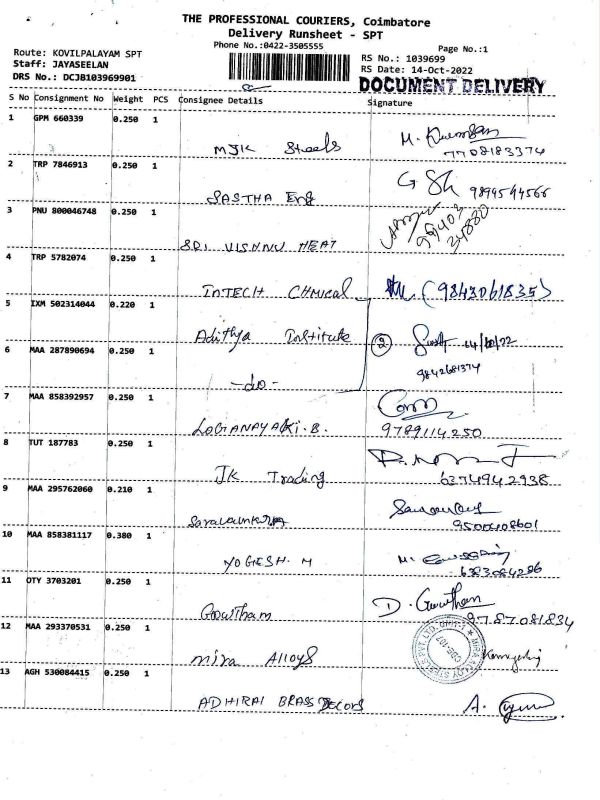 THE PROFESSIONAL COURIERS, Coimbatore
Delivery Runsheet - SPT
Phone No.:0422-3505555
Page No.:1
Route: KOVILPALAYAM SPT
Staff: JAYASEELAN
DRS No.: DCJB103969901
RS No.: 1039699
RS Date: 14-Oct-2022
DOCUMENT DELIVERY
S No Consignment No Weight PCS Consignee Details Signature
1 GPM 660339 0.250 1
MJK Steels 7708183374
2 TRP 7846913 0.250 1
SASTHA Eng
3 PNU 800046748 0.250 1
SRI VISHNU HEAT
4 TRP 5782074 0.250 1
INTECH CHmical (9843061835)
5 IXM 502314044 0.220 1
Adithya Institute 2 14/10/22
6 MAA 287890694 0.250 1
-do- 9842681374
7 MAA 858392957 0.250 1
LOGANAYAKI.B. 9789114250
8 TUT 187783 0.250 1
JK Trading 6374942938
9 MAA 295762060 0.210 1
9500408601
10 MAA 858381117 0.380 1
YOGESH.M 6383084286
11 OTY 3703201 0.250 1
Gowtham D. Gowtham 9787081834
12 MAA 293370531 0.250 1
Mira Alloys
13 AGH 530084415 0.250 1
ADHIRAI BRASS Decors